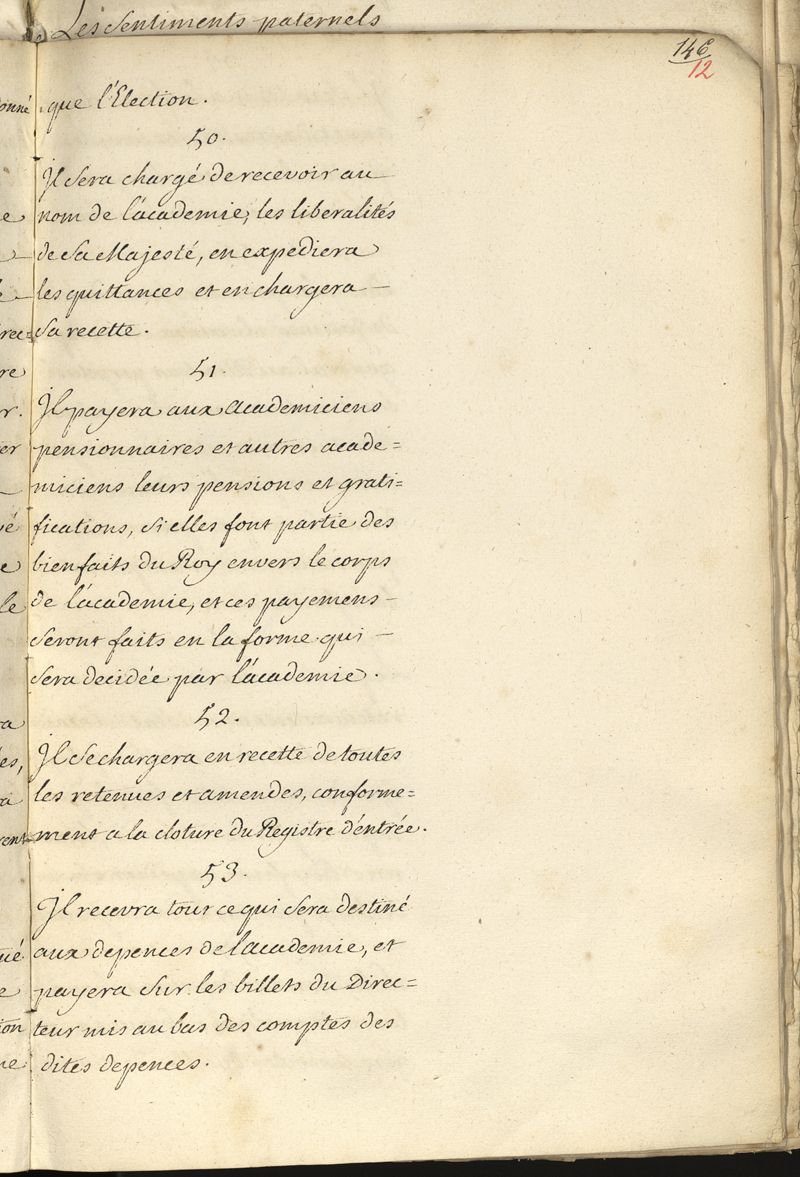 Les Sentiments paternels
146
12
que l'Election.
50.
Il sera chargé de recevoir au
nom de l'académie, les liberalités
de Sa Majesté, en expediera
les quittances et en chargera
Sa recette.
51.
Il payera aux Academiciens
pensionnaires et autres acade=
miciens leurs pensions et grati=
fications, si elles font partie des
bienfaits du Roy envers le corps
de l'académie, et ces payemens
seront faits en la forme qui
sera decidée par l'académie.
52.
Il se chargera en recette de toutes
les retenues et amendes, conforme=
ment a la cloture du Registre d'entrée.
53.
Il recevra tout ce qui sera destiné
aux depences de l'academie, et
payera sur les billets du Direc=
teur mis au bas des comptes des
dites depences.